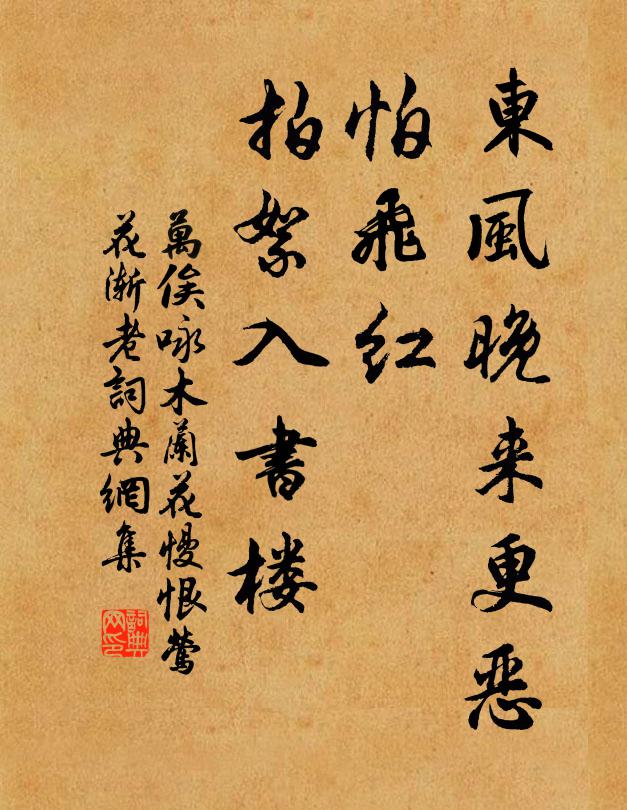 東風晚来更惡
怕飛紅
拍絮入書楼
萬俟咏木蘭花慢恨鶯
花漸老詞典網集
詞典
网印